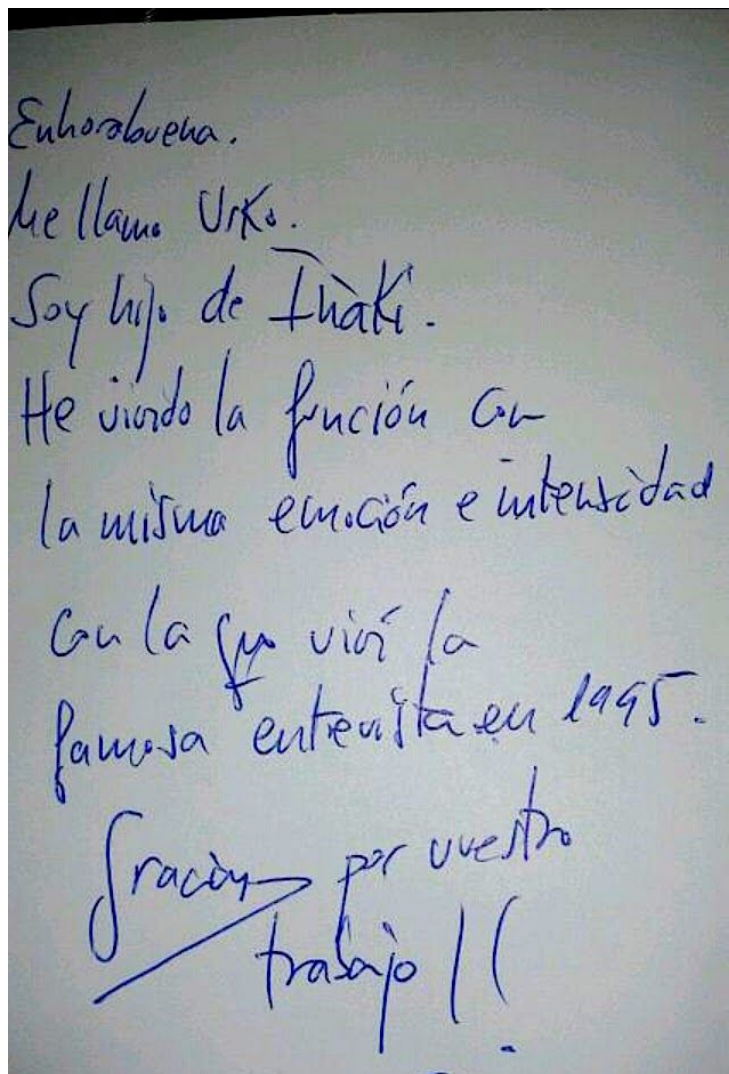 Enhorabuena.
Me llamo Urko.
Soy hijo de Iñaki.
He vivido la función con
la misma emoción e intensidad
con la que viví la
famosa entrevista en 1995.
Gracias por vuestro
trabajo!!